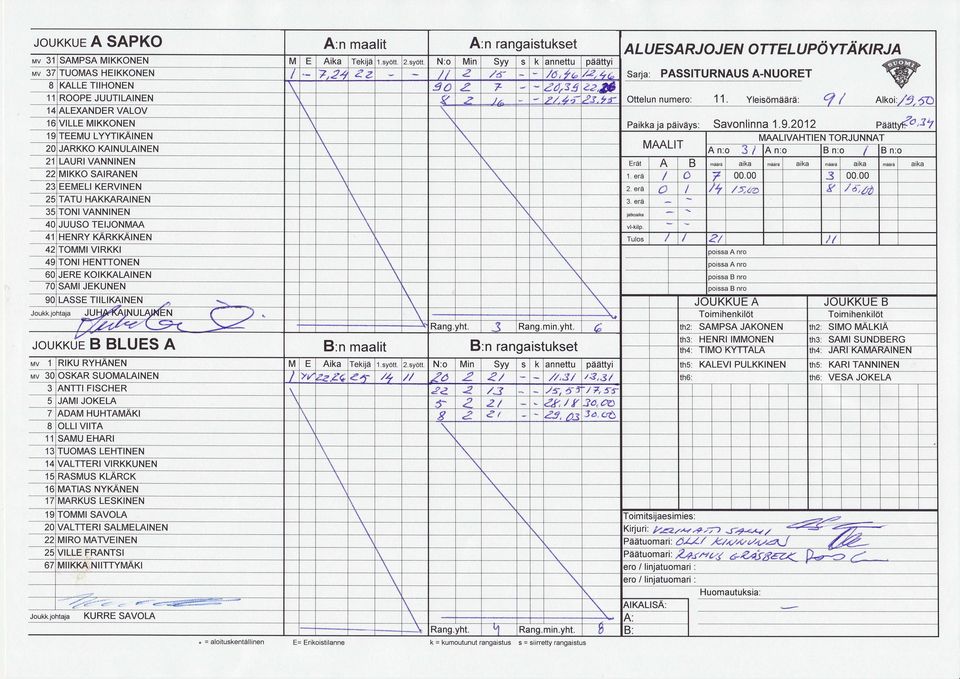 JOUKKUE A SAPKO
MV 31 SAMPSA MIKKONEN
MV 37 TUOMAS HEIKKONEN
8 KALLE TIIHONEN
11 ROOPE JUUTILAINEN
14 ALEXANDER VALOV
16 VILLE MIKKONEN
19 TEEMU LYYTIKÄINEN
20 JARKKO KAINULAINEN
21 LAURI VANNINEN
22 MIKKO SAIRANEN
23 EEMELI KERVINEN
25 TATU HAKKARAINEN
35 TONI VANNINEN
40 JUUSO TEIJONMAA
41 HENRY KÄRKKÄINEN
42 TOMMI VIRKKI
49 TONI HENTTONEN
60 JERE KOIKKALAINEN
70 SAMI JEKUNEN
90 LASSE TIILIKAINEN
Joukk.johtaja JUHA KAINULAINEN
A:n maalit
M E Aika Tekijä 1.syött. 2.syött.
1 - 7,24 22 - -
A:n rangaistukset
N:o Min Syy s k annettu päättyi
11 2 15 - - 10,46 12,46
90 2 7 - - 20,39
8 2 16 - - 21,45 23,45
Rang.yht. 3 Rang.min.yht. 6
JOUKKUE B BLUES A
MV 1 RIKU RYHÄNEN
MV 30 OSKAR SUOMALAINEN
3 ANTTI FISCHER
5 JAMI JOKELA
7 ADAM HUHTAMÄKI
8 OLLI VIITA
11 SAMU EHARI
13 TUOMAS LEHTINEN
14 VALTTERI VIRKKUNEN
15 RASMUS KLÄRCK
16 MATIAS NYKÄNEN
17 MARKUS LESKINEN
19 TOMMI SAVOLA
20 VALTTERI SALMELAINEN
22 MIRO MATVEINEN
25 VILLE FRANTSI
67 MIIKKA NIITTYMÄKI
Joukk.johtaja KURRE SAVOLA
B:n maalit
M E Aika Tekijä 1.syött. 2.syött.
1 YV 22,26 25 14 11
B:n rangaistukset
N:o Min Syy s k annettu päättyi
20 2 21 - - 11.31 13.31
22 2 13 - - 15,55 17,55
5 2 21 - - 28.18 30,00
8 2 21 - - 29,03 30.00
Rang.yht. 4 Rang.min.yht. 8
* = aloituskentällinen E= Erikoistilanne k = kumoutunut rangaistus s = siirretty rangaistus
ALUESARJOJEN OTTELUPÖYTÄKIRJA
SUOMI
Sarja: PASSITURNAUS A-NUORET
Ottelun numero: 11. Yleisömäärä: 91 Alkoi: 19,50
Paikka ja päiväys: Savonlinna 1.9.2012 Päättyi: 20,34
MAALIT
MAALIVAHTIEN TORJUNNAT
A n:o 31 A n:o B n:o 1 B n:o
Erät A B määrä aika määrä aika määrä aika määrä aika
1. erä 1 0 7 00.00 3 00.00
2. erä 0 1 14 15,00 8 15,00
3. erä - -
jatkoaika - -
vl-kilp. - -
Tulos 1 1 21 11
poissa A nro
poissa A nro
poissa B nro
poissa B nro
JOUKKUE A JOUKKUE B
Toimihenkilöt Toimihenkilöt
th2: SAMPSA JAKONEN th2: SIMO MÄLKIÄ
th3: HENRI IMMONEN th3: SAMI SUNDBERG
th4: TIMO KYTTALA th4: JARI KAMARAINEN
th5: KALEVI PULKKINEN th5: KARI TANNINEN
th6: th6: VESA JOKELA
Toimitsijaesimies:
Kirjuri: VELIMATTI SAMMI
Päätuomari: OLLI KINNUNEN
Päätuomari: RASMUS GRÄSBECK
ero / linjatuomari :
ero / linjatuomari :
Huomautuksia:
-
AIKALISÄ:
A:
B: